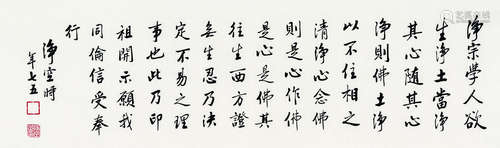 淨宗學人欲
生淨土當淨
其心隨其心
淨則佛土淨
以不住相之
清淨心念佛
則是心作佛
是心是佛其
往生西方證
無生忍乃決
定不易之理
事也此乃印
祖開示願我
同倫信受奉
行
淨空時
年七五